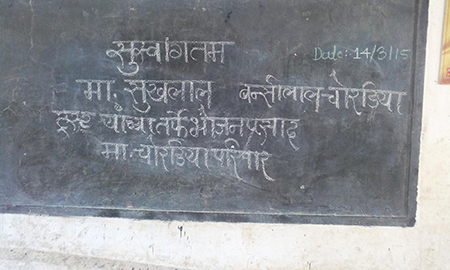 सुस्वागतम Date: 14/3/15
मा. सुखलाल बन्सीलाल चोरडिया
ट्रस्ट यांच्या तर्फे भोजन प्रसाद
मा. चोरडिया परिवार